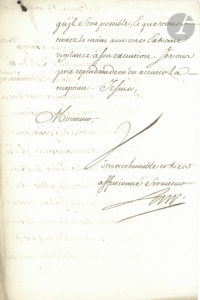 qu'il sera possible, et que vous
tenez la main avec
vigilance a son execution. Je vous
prie cependant de m'en accuser la
reception. Je suis,
Monsieur,
Votre tres humble et tres
affectionné Serviteur